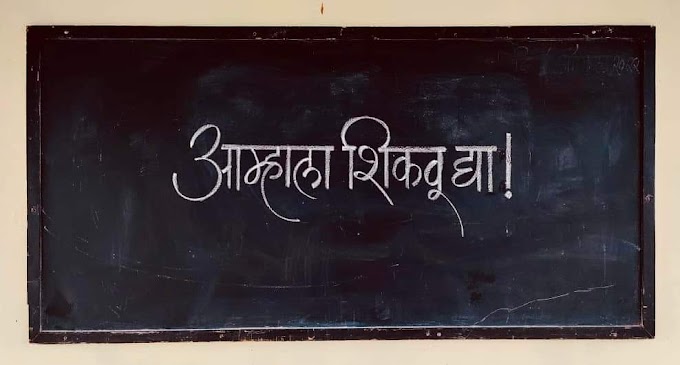 आम्हाला शिकवू द्या!